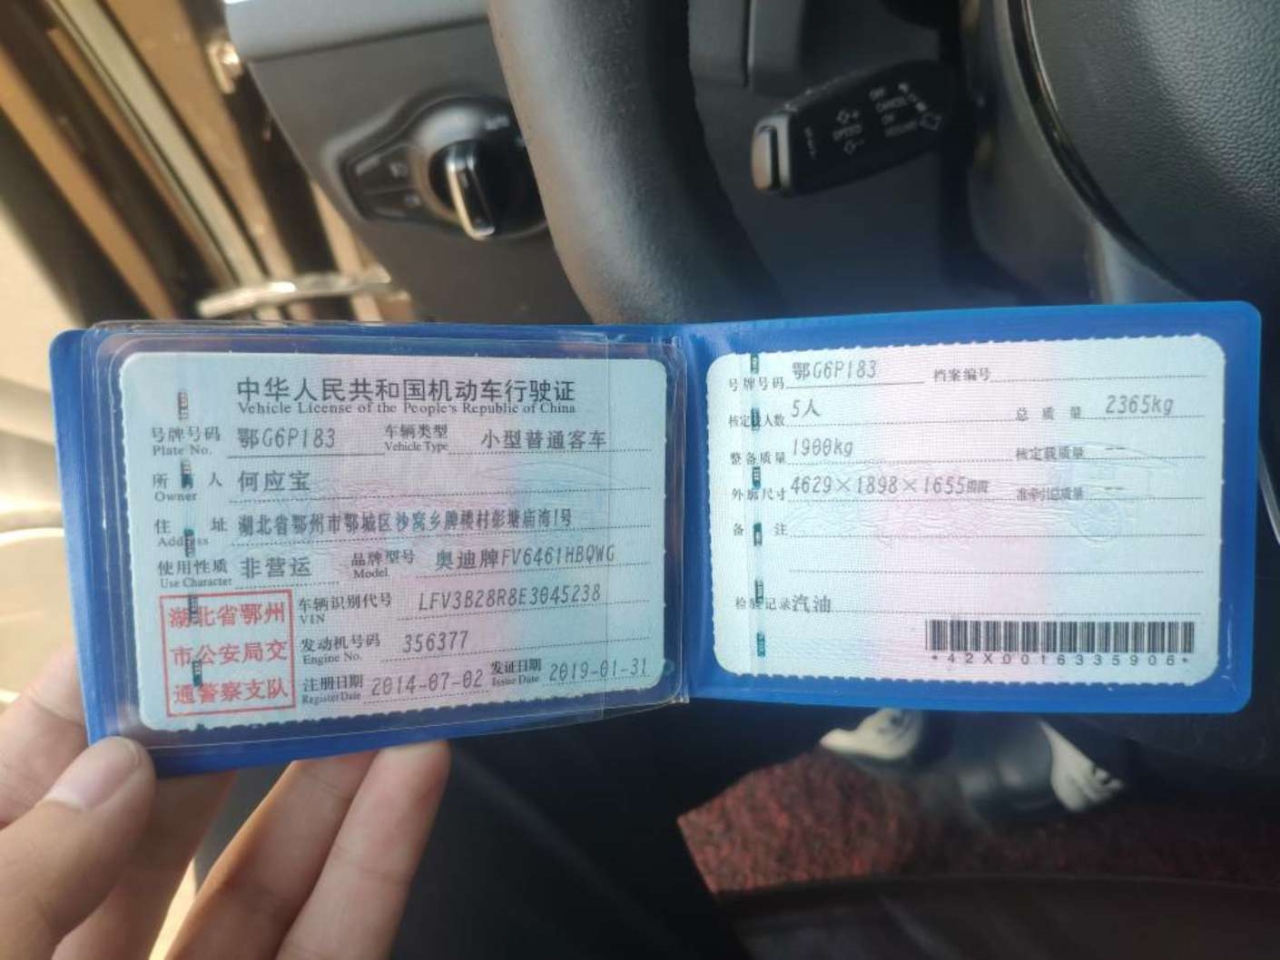 中华人民共和国机动车行驶证
Vehicle License of the People's Republic of China
号牌号码 鄂G6P183 车辆类型 小型普通客车
Plate No. Vehicle Type
所有人 何应宝
Owner
住址 湖北省鄂州市鄂城区沙窝乡牌楼村彭塘庙湾1号
Address
使用性质 非营运 品牌型号 奥迪牌FV6461HBQWG
Use Character Model
湖北省鄂州
市公安局交
通警察支队
车辆识别代号 LFV3B28R8E3045238
VIN
发动机号码 356377
Engine No.
注册日期 2014-07-02 发证日期 2019-01-31
Register Date Issue Date
号牌号码 鄂G6P183 档案编号
核定载人数 5人 总质量 2365kg
整备质量 1900kg 核定载质量 --
外廓尺寸 4629×1898×1655mm 准牵引总质量 --
备注
检验记录 汽油
*42X0016335906*
CANCEL
SPEED